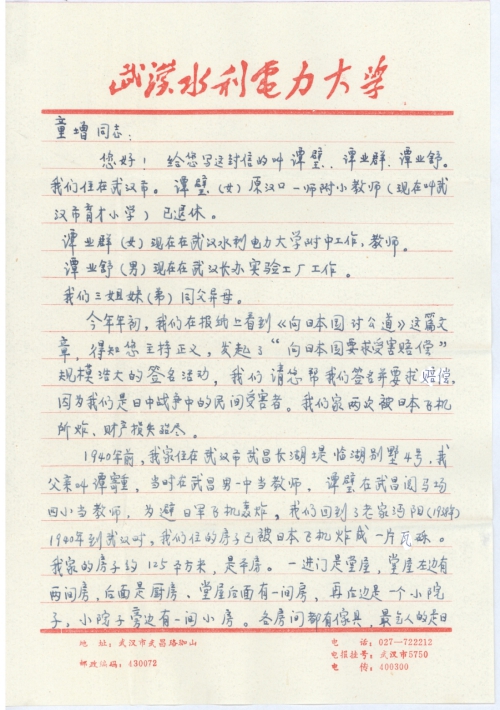 武漢水利電力大学
童增同志：
您好！给您写这封信的叫谭壁、谭业群、谭业舒。
我们住在武汉市。谭壁（女）原汉口一师附小教师（现在叫武
汉市育才小学）已退休。
谭业群（女）现在在武汉水利电力大学附中工作，教师。
谭业舒（男）现在在武汉长办实验工厂工作。
我们三姐妹（弟）同父异母。
今年年初，我们在报纳上看到《向日本国讨公道》这篇文
章，得知您主持正义，发起了“向日本国要求受害赔偿”
规模浩大的签名活动，我们请您帮我们签名并要求赔偿，
因为我们是日中战争中的民间受害者。我们家两次被日本飞机
所炸、财产损失殆尽。
1940年前，我家住在武汉市武昌长湖堤临湖别墅4号，我
父亲叫谭，当时在武昌男一中当教师，谭壁在武昌阅马场
四小当教师，为避日军飞机轰炸，我们回到了老家沔阳（1938年）
1940年到武汉时，我们住的房子已被日本飞机炸成一片瓦砾。
我家的房子约125平方米，是平房。一进门是堂屋，堂屋左边有
两间房，后面是厨房、堂屋后面有一间房，再左边是一个小院
子，小院子旁边有一间小房。各房间都有家具，最乞人的是日
地 址：武汉市武昌珞珈山
电 话：027—722212
电报挂号：武汉市5750
邮政编码：430072
电 传：400300